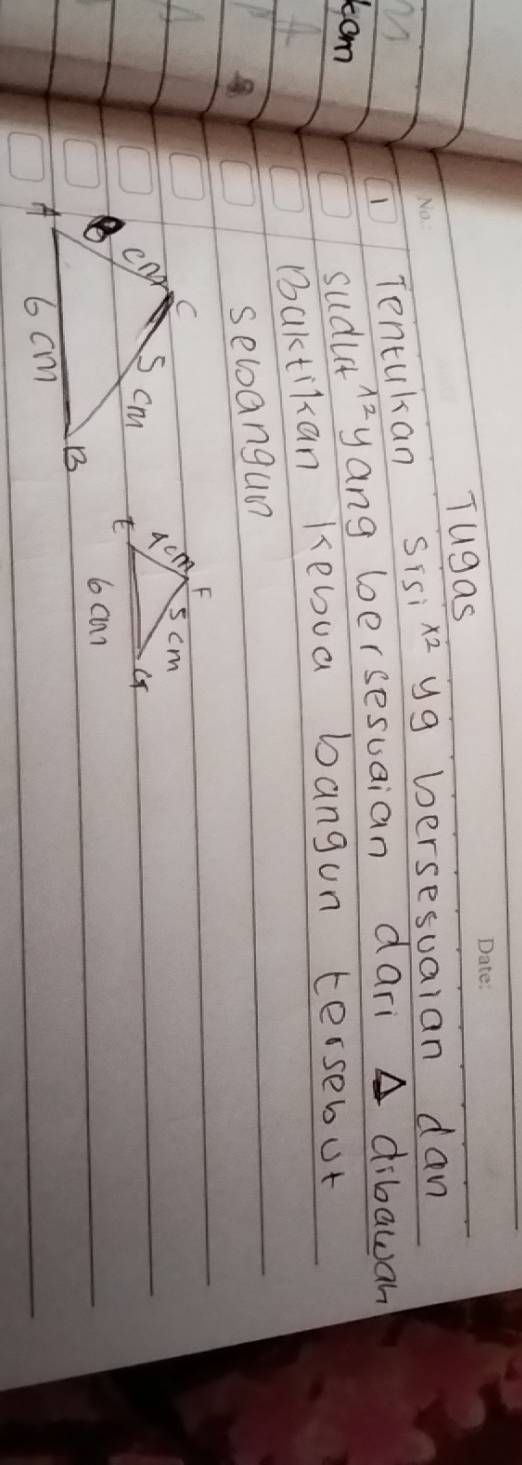 kam
No.:
Date:
Tugas
1 Tentukan sisi²x yg bersesuaian dan
sudut²x yang bersesuaian dari Δ dibawah
Buktikan kebua bangun tersebut
sebangun
C
cm
5 cm
A
B
6 cm
F
4 cm
5 cm
E
G
6 cm